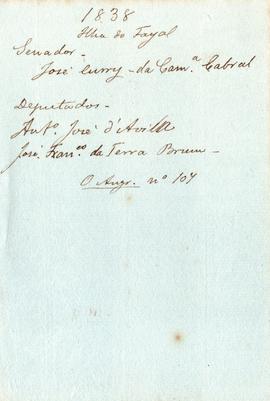 1838
Ilha do Fayal
Senador -
José Curry - da Cam.ª Cabral
Deputados -
Ant.º José d'Avila
José Fran.co da Terra Brum -
O Angr. nº 107